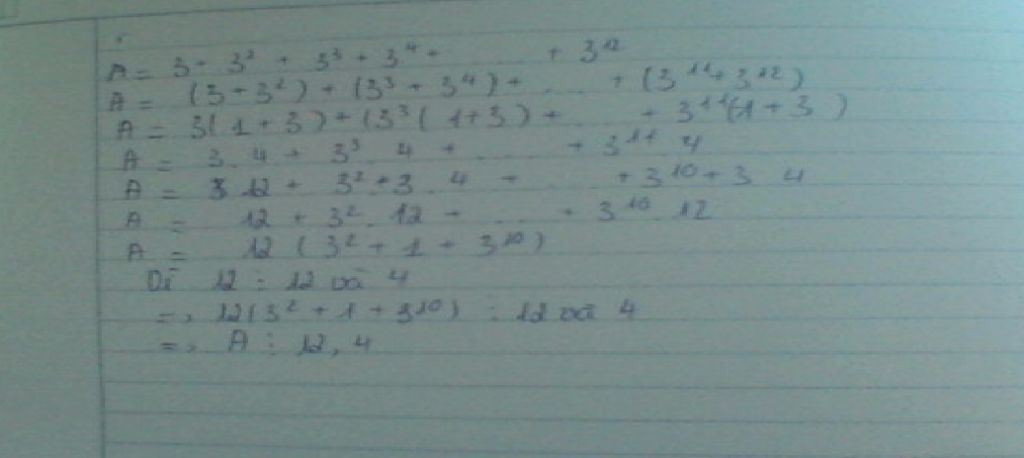 A = 3 + 3² + 3³ + 3⁴ + ..... + 3¹²
A = (3 + 3²) + (3³ + 3⁴) + ..... + (3¹¹ + 3¹²)
A = 3(1 + 3) + (3³(1 + 3) + ..... + 3¹¹(1 + 3)
A = 3.4 + 3³.4 + ..... + 3¹¹.4
A = 12 + 3² + 3.4 + ..... + 3¹⁰ + 3.4
A = 12 + 3².12 + ..... + 3¹⁰.12
A = 12(3² + 1 + 3¹⁰)
Vì 12 ⋮ 12 và 4
=> 12(3² + 1 + 3¹⁰) ⋮ 12 và 4
=> A ⋮ 12, 4